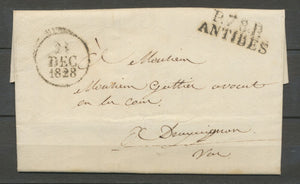 P.78.P
ANTIBES
23
DEC
1828
A Monsieur
Monsieur Guttier avocat
en la cour
A Draguignan
Var